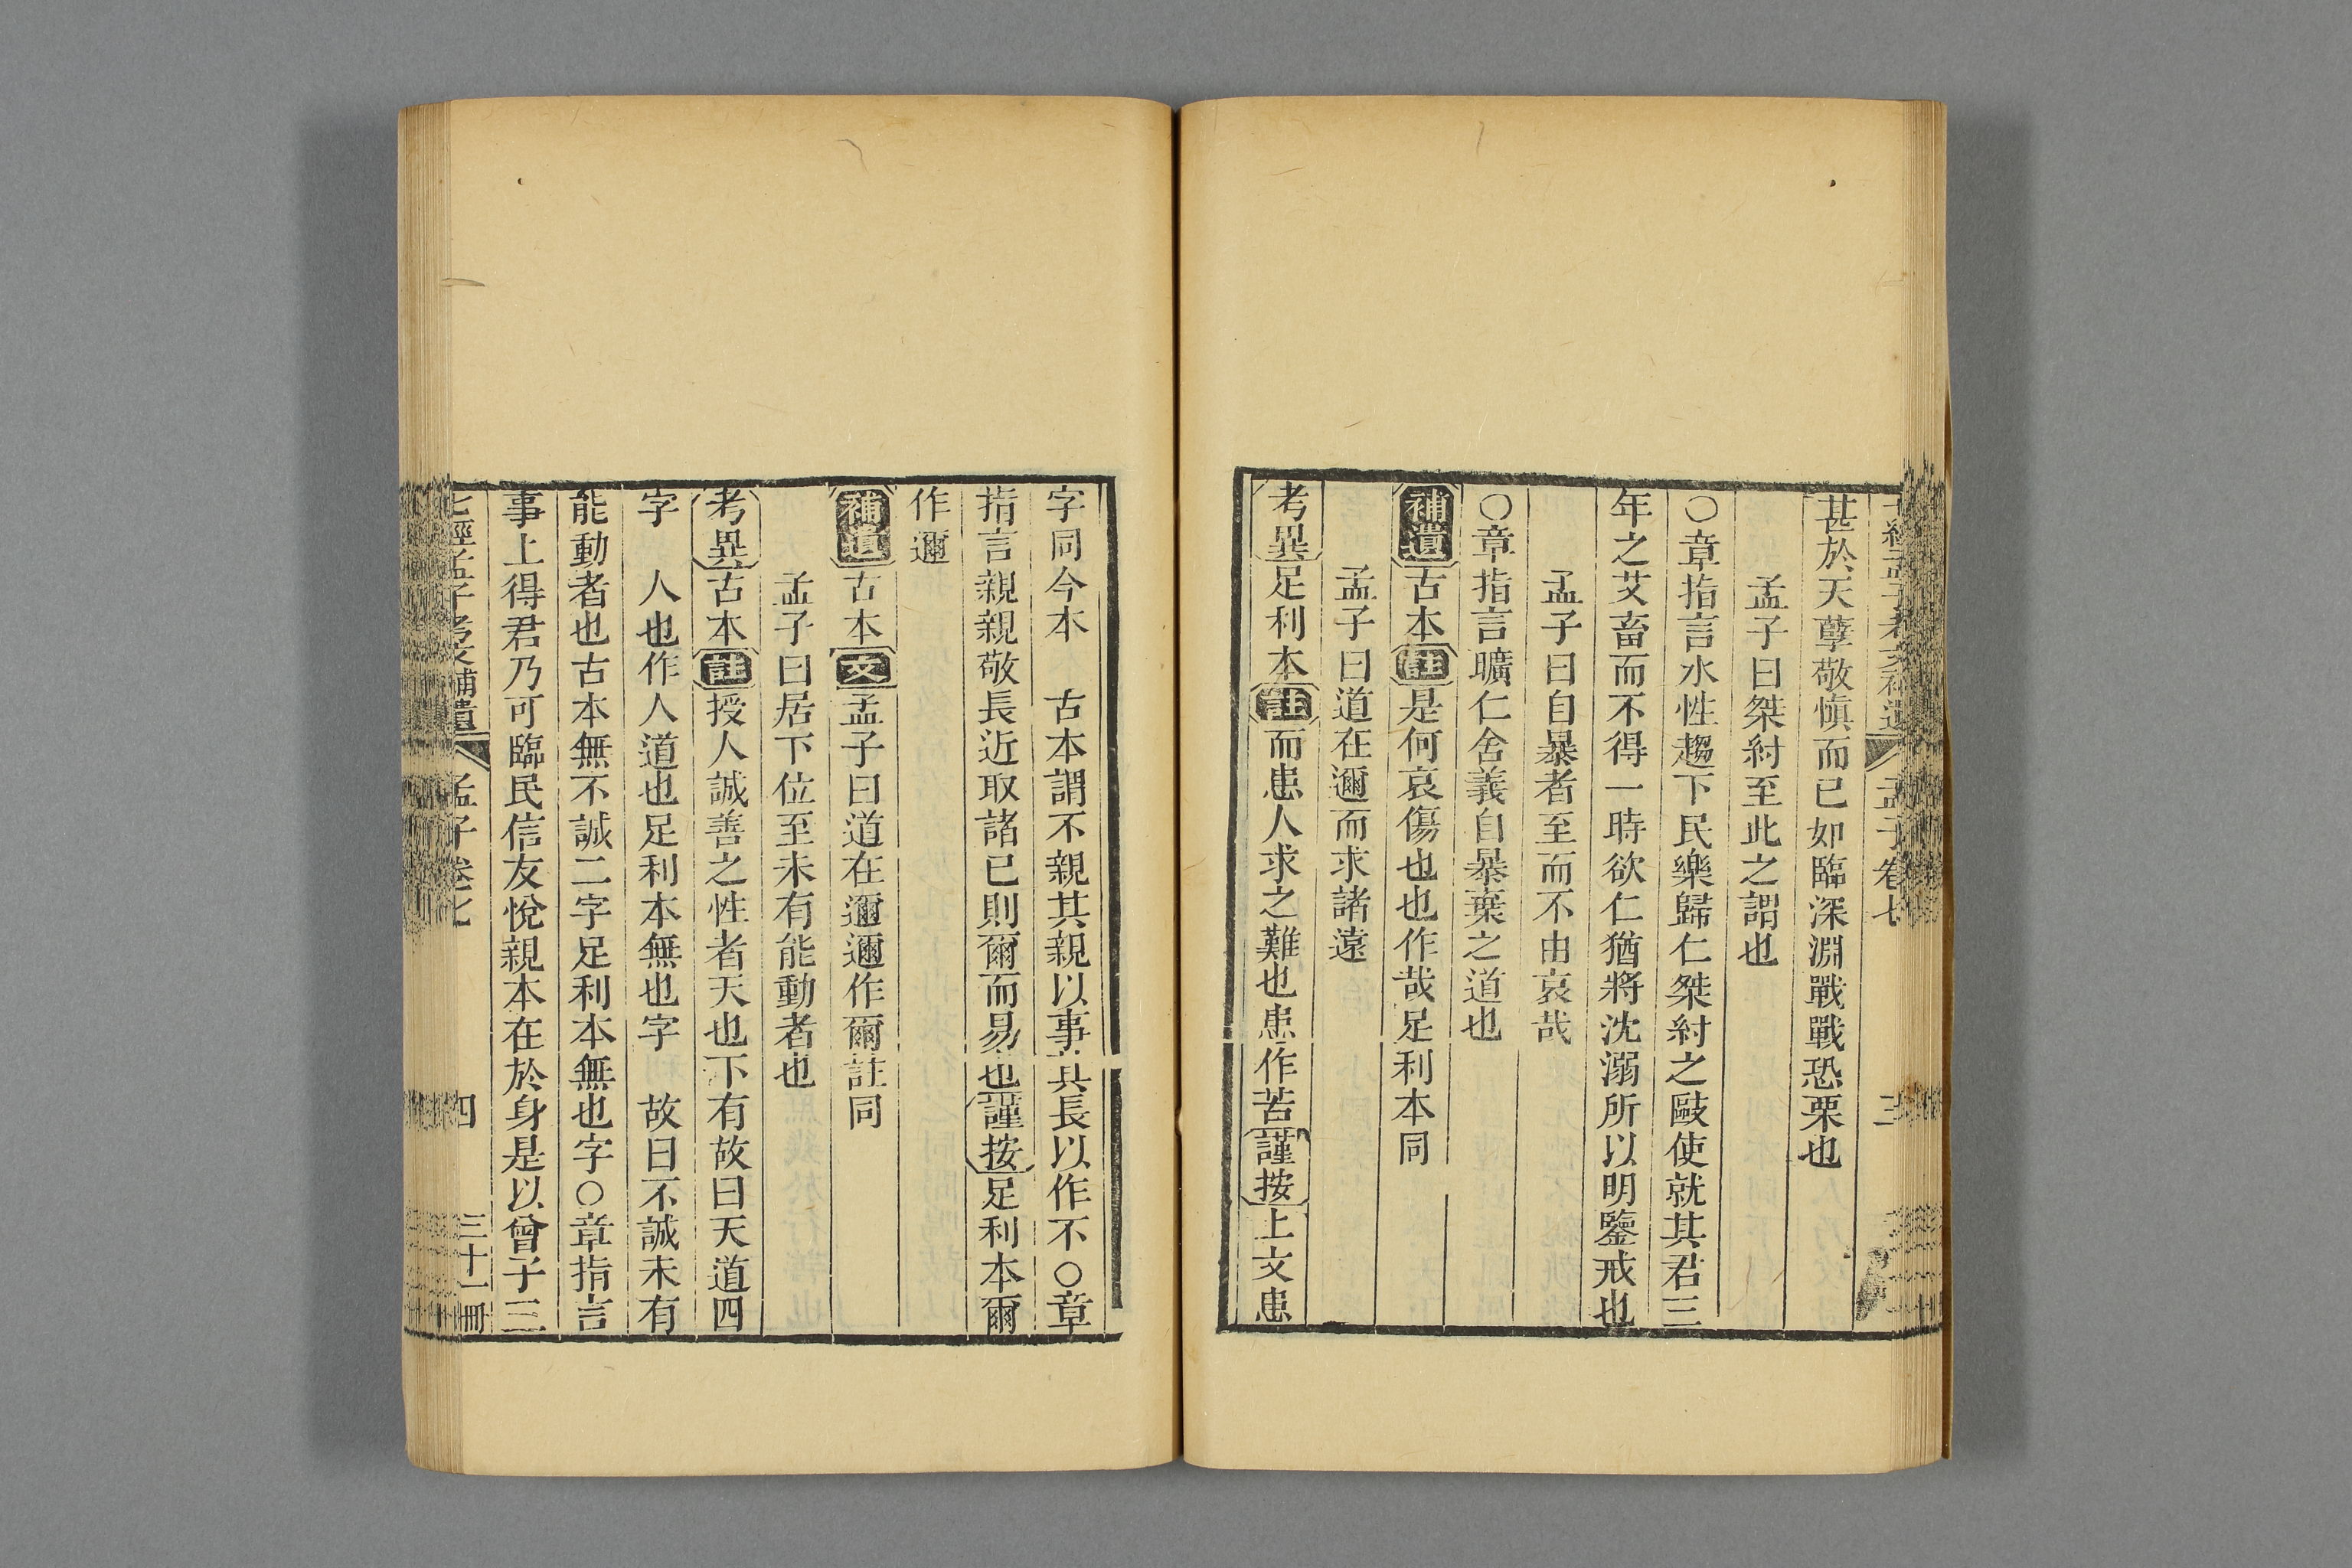 甚於天孽敬愼而已如臨深淵戰戰恐栗也
孟子曰桀紂至此之謂也
○章指言水性趨下民樂歸仁桀紂之敺使就其君三
年之艾畜而不得一時欲仁猶將沈溺所以明鑒戒也
孟子曰自暴者至而不由哀哉
○章指言曠仁舍義自暴棄之道也
補遺古本註是何哀傷也也作哉足利本同
孟子曰道在邇而求諸遠
考異足利本註而患人求之難也患作苦謹按上文患
字同今本　古本謂不親其親以事其長以作不○章
指言親親敬長近取諸已則爾而易也謹按足利本爾
作邇
補遺古本文孟子曰道在邇邇作爾註同
孟子曰居下位至未有能動者也
考異古本註授人誠善之性者天也下有故曰天道四
字　人也作人道也足利本無也字　故曰不誠未有
能動者也古本無不誠二字足利本無也字○章指言
事上得君乃可臨民信友悅親本在於身是以曾子三
七經孟子考文補遺　孟子卷七　四　三十一冊